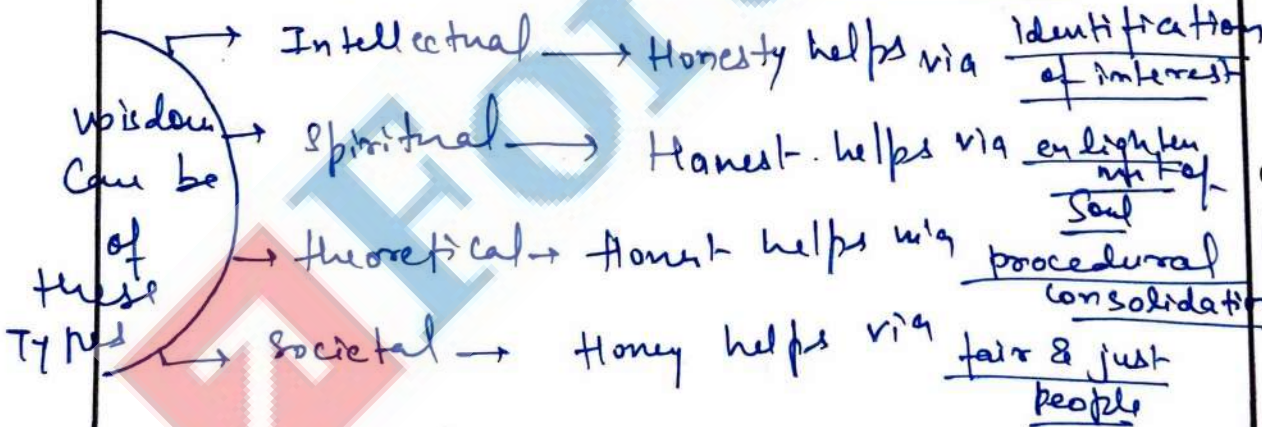 Wisdom Can be of these Types
→ Intellectual → Honesty helps via identification of interest
→ Spiritual → Honest. helps via enlightenment of Soul
→ theoretical → Honest helps via procedural Consolidati
→ Societal → Honey helps via fair & just people
FO